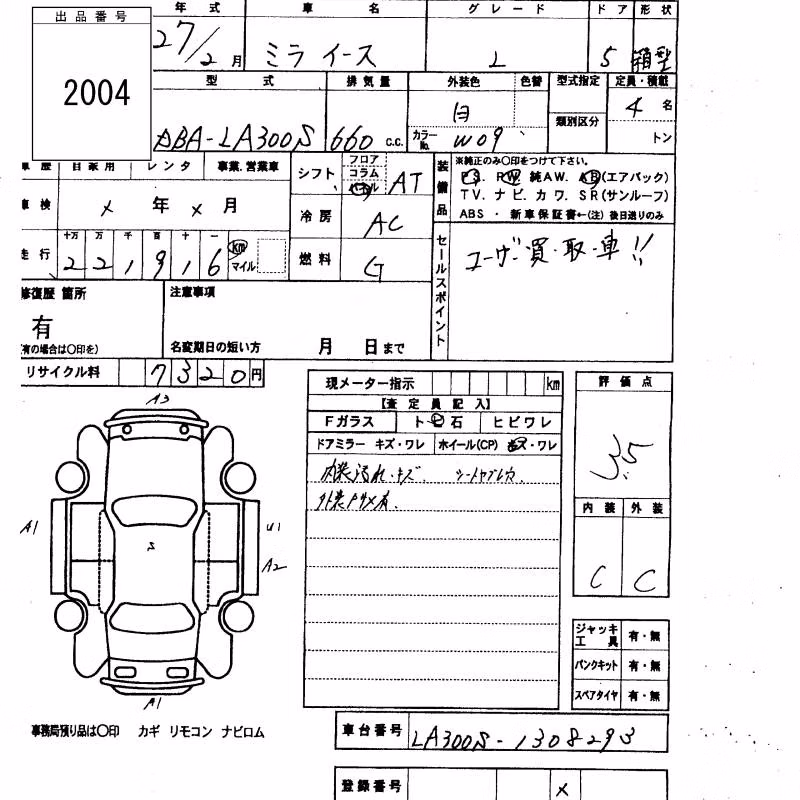 出品番号
2004
年式 車名 グレード ドア 形状
27/2月 ミライース L 5 箱型
型式 排気量 外装色 色替 型式指定 定員・積載
類別区分
DBA-LA300S 660 c.c. 白 カラーNo. W09 4名
トン
車歴 自家用 レンタ 事業,営業車
シフト フロア コラム AT
車検 x年x月
冷房 AC
走行 十万 万 千 百 十 一
221,916 km マイル
燃料 G
装備品 ※純正のみ〇印をつけて下さい。
P S. P W 純AW. A B (エアバック)
TV. ナビ. カワ. SR(サンルーフ)
ABS ・ 新車保証書←(注) 後日送りのみ
セールスポイント
ユーザー買・取・車!!
修復歴 箇所
有
(有の場合は〇印を)
注意事項
名変期日の短い方 月 日まで
リサイクル料 7320円
現メーター指示 km
【査定員記入】
Fガラス ト ビ 石 ヒビワレ
ドアミラー キズ・ワレ ホイール(CP) キズ・ワレ
内装汚れ・キズ. シートヤブレ穴.
外装キズ有.
評価点
3.5
内装 外装
C C
A3
A1
U1
S
A2
A1
ジャッキ工具 有・無
パンクキット 有・無
スペアタイヤ 有・無
事務局預り品は〇印 カギ リモコン ナビロム
車台番号 LA300S-1308293
登録番号 x